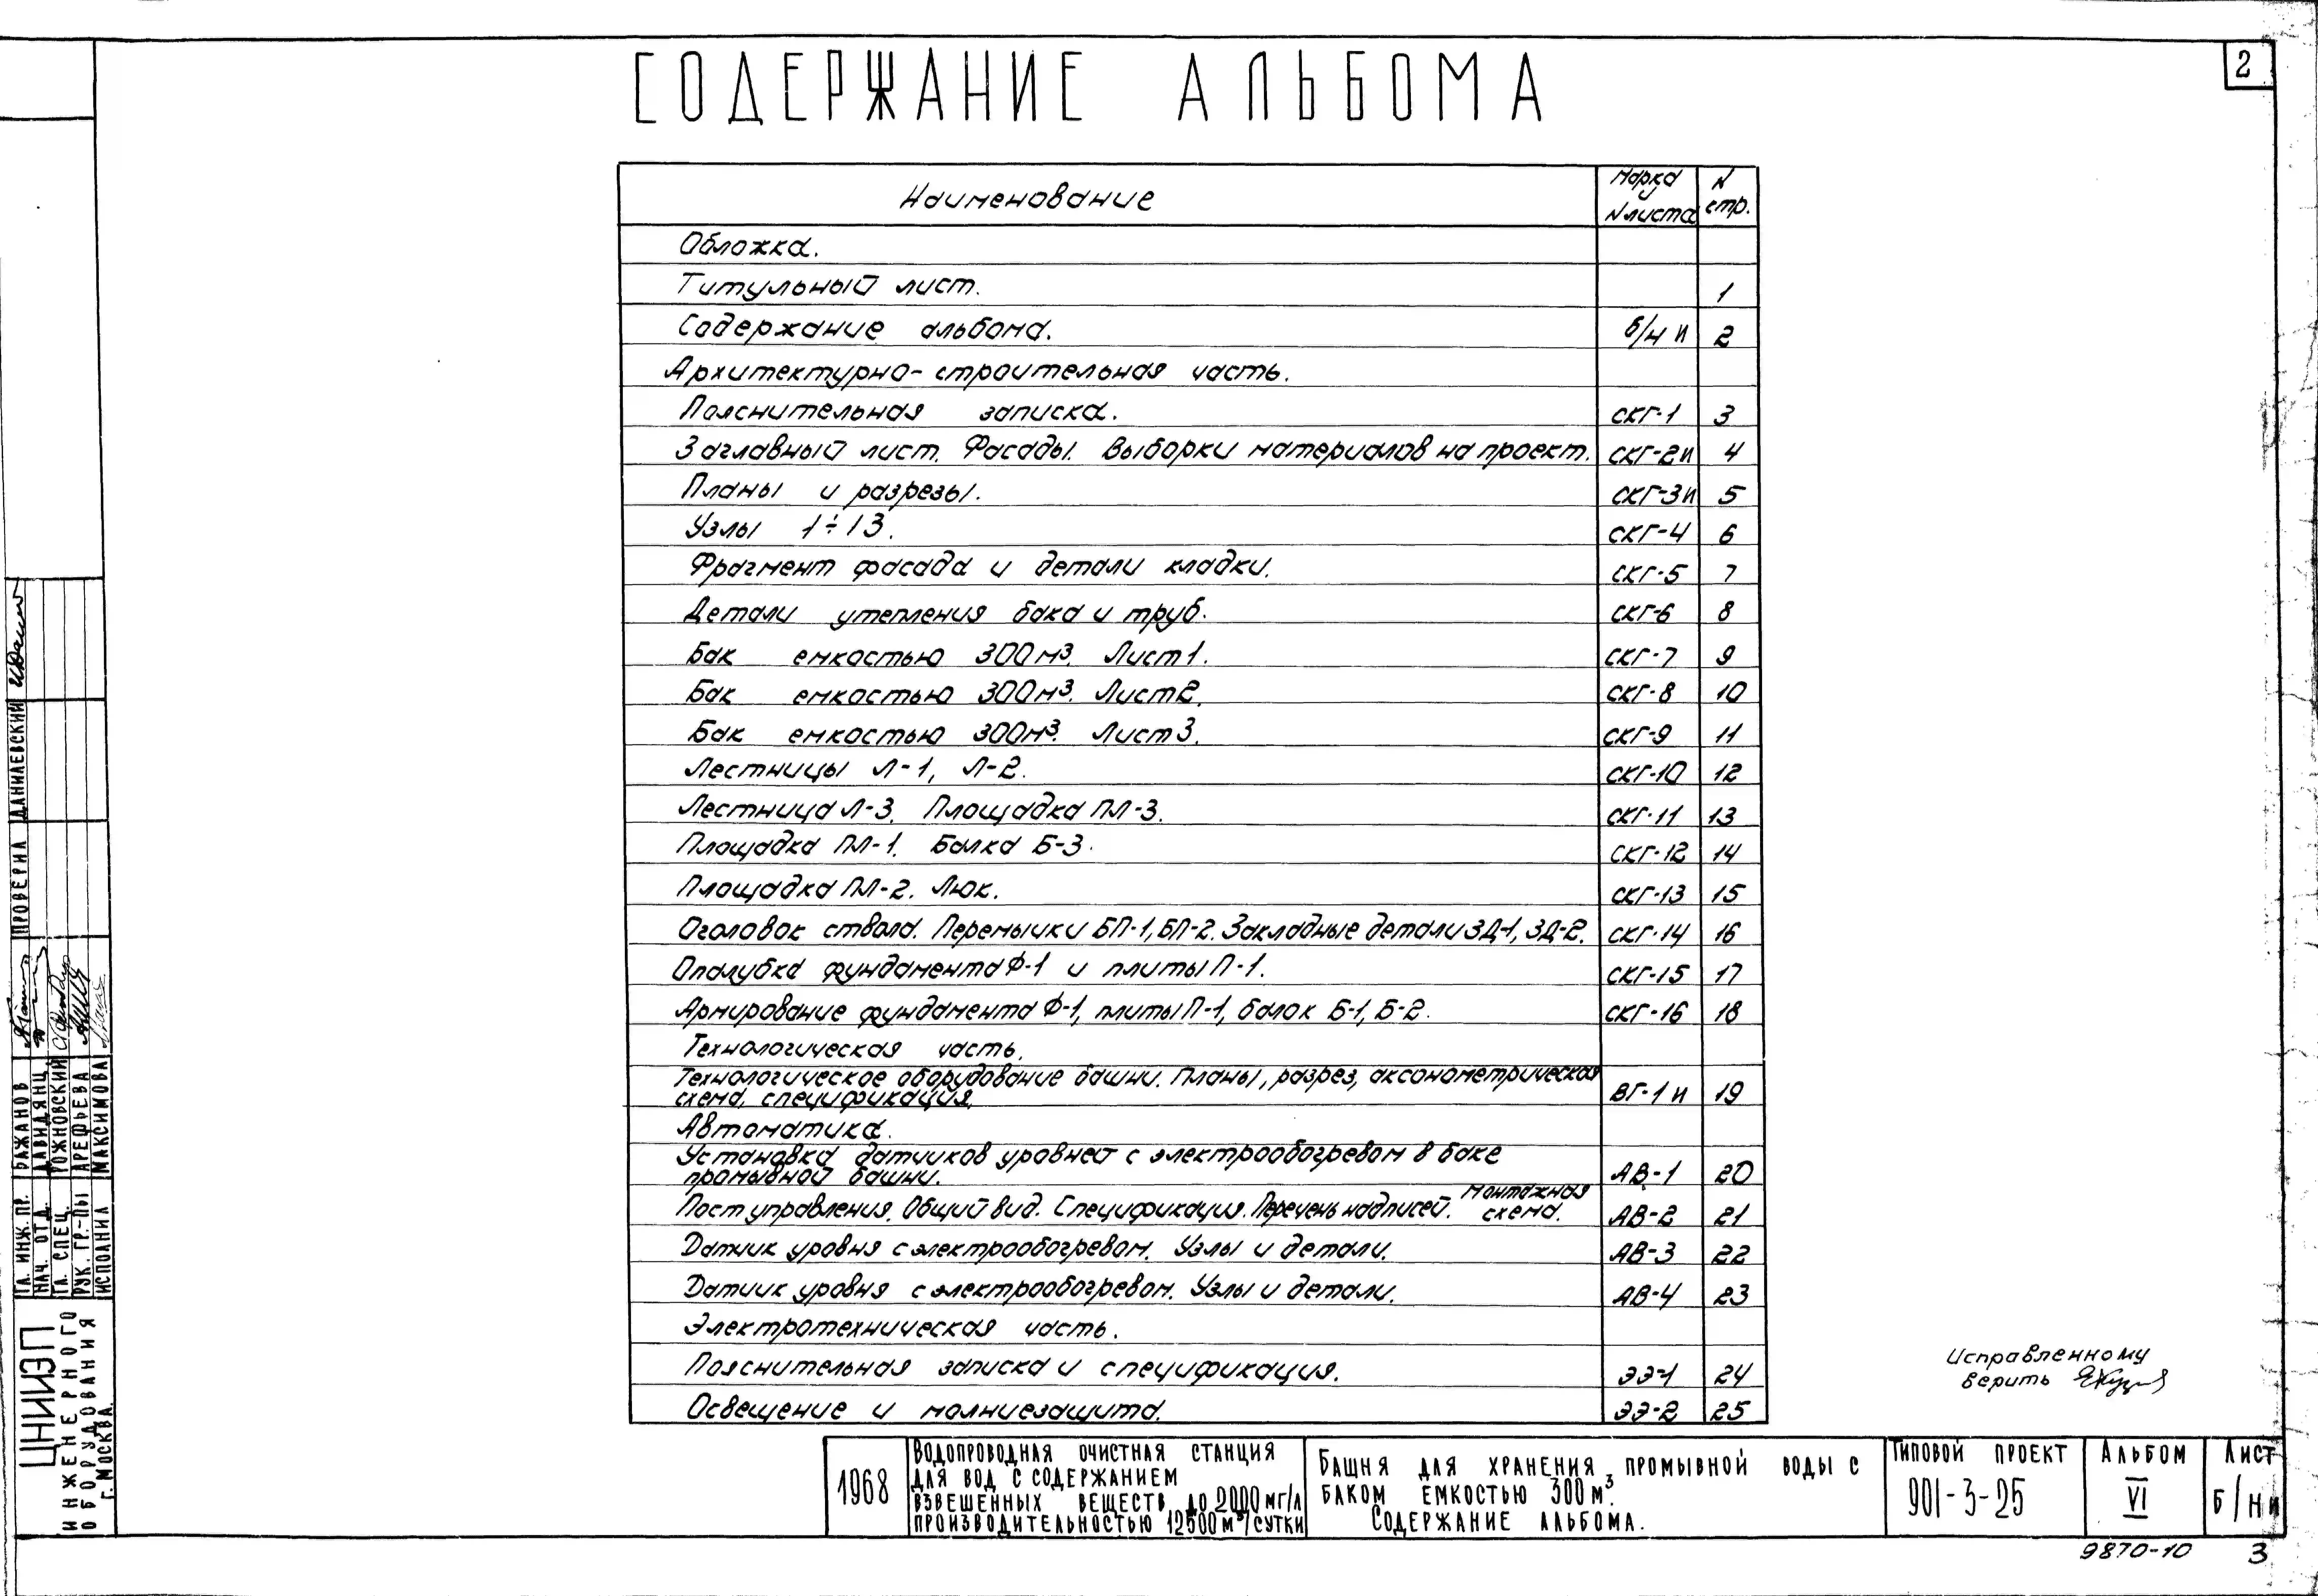 2
СОДЕРЖАНИЕ АЛЬБОМА
Наименование Марка Nлиста N стр.
Обложка.
Титульный лист. 1
Содержание альбома. б/н и 2
Архитектурно-строительная часть.
Пояснительная записка. СКГ-1 3
Заглавный лист. Фасады. Выборки материалов на проект. СКГ-2и 4
Планы и разрезы. СКГ-3и 5
Узлы 1÷13. СКГ-4 6
Фрагмент фасада и детали кладки. СКГ-5 7
Детали утепления бака и труб. СКГ-6 8
Бак емкостью 300м³. Лист1. СКГ-7 9
Бак емкостью 300м³. Лист2. СКГ-8 10
Бак емкостью 300м³. Лист3. СКГ-9 11
Лестницы Л-1, Л-2. СКГ-10 12
Лестница Л-3. Площадка ПЛ-3. СКГ-11 13
Площадка ПЛ-1. Балка Б-3. СКГ-12 14
Площадка ПЛ-2. Люк. СКГ-13 15
Оголовок ствола. Перемычки БП-1, БП-2. Закладные детали ЗД-1, ЗД-2. СКГ-14 16
Опалубка фундамента Ф-1 и плиты П-1. СКГ-15 17
Армирование фундамента Ф-1, плиты П-1, балок Б-1, Б-2. СКГ-16 18
Технологическая часть.
Технологическое оборудование башни. Планы, разрез, аксонометрическая
схема, спецификация. ВГ-1и 19
Автоматика.
Установка датчиков уровнест с электрообогревом в баке
промывной башни. АВ-1 20
Пост управления. Общий вид. Спецификация. Перечень надписей. Монтажная схема. АВ-2 21
Датчик уровня с электрообогревом. Узлы и детали. АВ-3 22
Датчик уровня с электрообогревом. Узлы и детали. АВ-4 23
Электротехническая часть.
Пояснительная записка и спецификация. ЭЭ-1 24
Освещение и молниезащита. ЭЭ-2 25
Исправленному
верить
ПРОВЕРИЛ ДАНИЛЕВСКИЙ
ГЛ. ИНЖ. ПР. БАЖАНОВ
НАЧ. ОТД. ДАВИДЯНЦ
ГЛ. СПЕЦ. РОЖНОВСКИЙ
РУК. ГР.-ПЫ АРЕФЬЕВА
ИСПОЛНИЛ МАКСИМОВА
ЦНИИЭП
ИНЖЕНЕРНОГО
ОБОРУДОВАНИЯ
Г. МОСКВА.
1968
ВОДОПРОВОДНАЯ ОЧИСТНАЯ СТАНЦИЯ
ДЛЯ ВОД С СОДЕРЖАНИЕМ
ВЗВЕШЕННЫХ ВЕЩЕСТВ ДО 2000 МГ/Л
ПРОИЗВОДИТЕЛЬНОСТЬЮ 12500 М³/СУТКИ
БАШНЯ ДЛЯ ХРАНЕНИЯ ПРОМЫВНОЙ ВОДЫ С
БАКОМ ЕМКОСТЬЮ 300 М³.
СОДЕРЖАНИЕ АЛЬБОМА.
ТИПОВОЙ ПРОЕКТ
901-3-25
АЛЬБОМ
VI
ЛИСТ
Б/Н и
9870-10 3